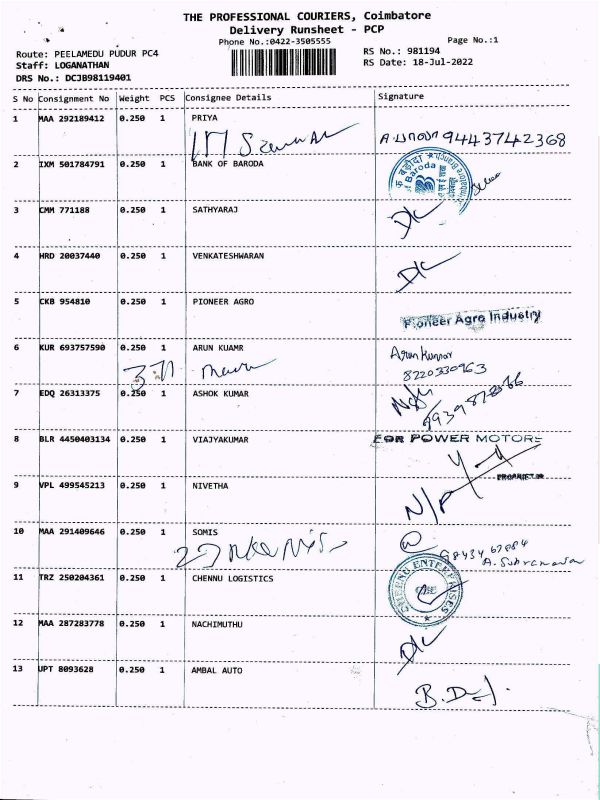 THE PROFESSIONAL COURIERS, Coimbatore
Delivery Runsheet - PCP
Phone No.:0422-3505555 Page No.:1
Route: PEELAMEDU PUDUR PC4 RS No.: 981194
Staff: LOGANATHAN RS Date: 18-Jul-2022
DRS No.: DCJB98119401
S No Consignment No Weight PCS Consignee Details Signature
1 MAA 292189412 0.250 1 PRIYA
9443742368
2 IXM 501784791 0.250 1 BANK OF BARODA
of Baroda
3 CMM 771188 0.250 1 SATHYARAJ
D/C
4 HRD 20037440 0.250 1 VENKATESHWARAN
D/C
5 CKB 954810 0.250 1 PIONEER AGRO
Pioneer Agro Industry
6 KUR 693757590 0.250 1 ARUN KUAMR
Arun Kumar
8220330963
7 EDQ 26313375 0.250 1 ASHOK KUMAR
8 BLR 4450403134 0.250 1 VIAJYAKUMAR
FOR POWER MOTORS
9 VPL 499545213 0.250 1 NIVETHA
N/P
10 MAA 291409646 0.250 1 SOMIS
11 TRZ 250204361 0.250 1 CHENNU LOGISTICS
CHENNU ENTERPRISES
12 MAA 287283778 0.250 1 NACHIMUTHU
D/C
13 UPT 8093628 0.250 1 AMBAL AUTO